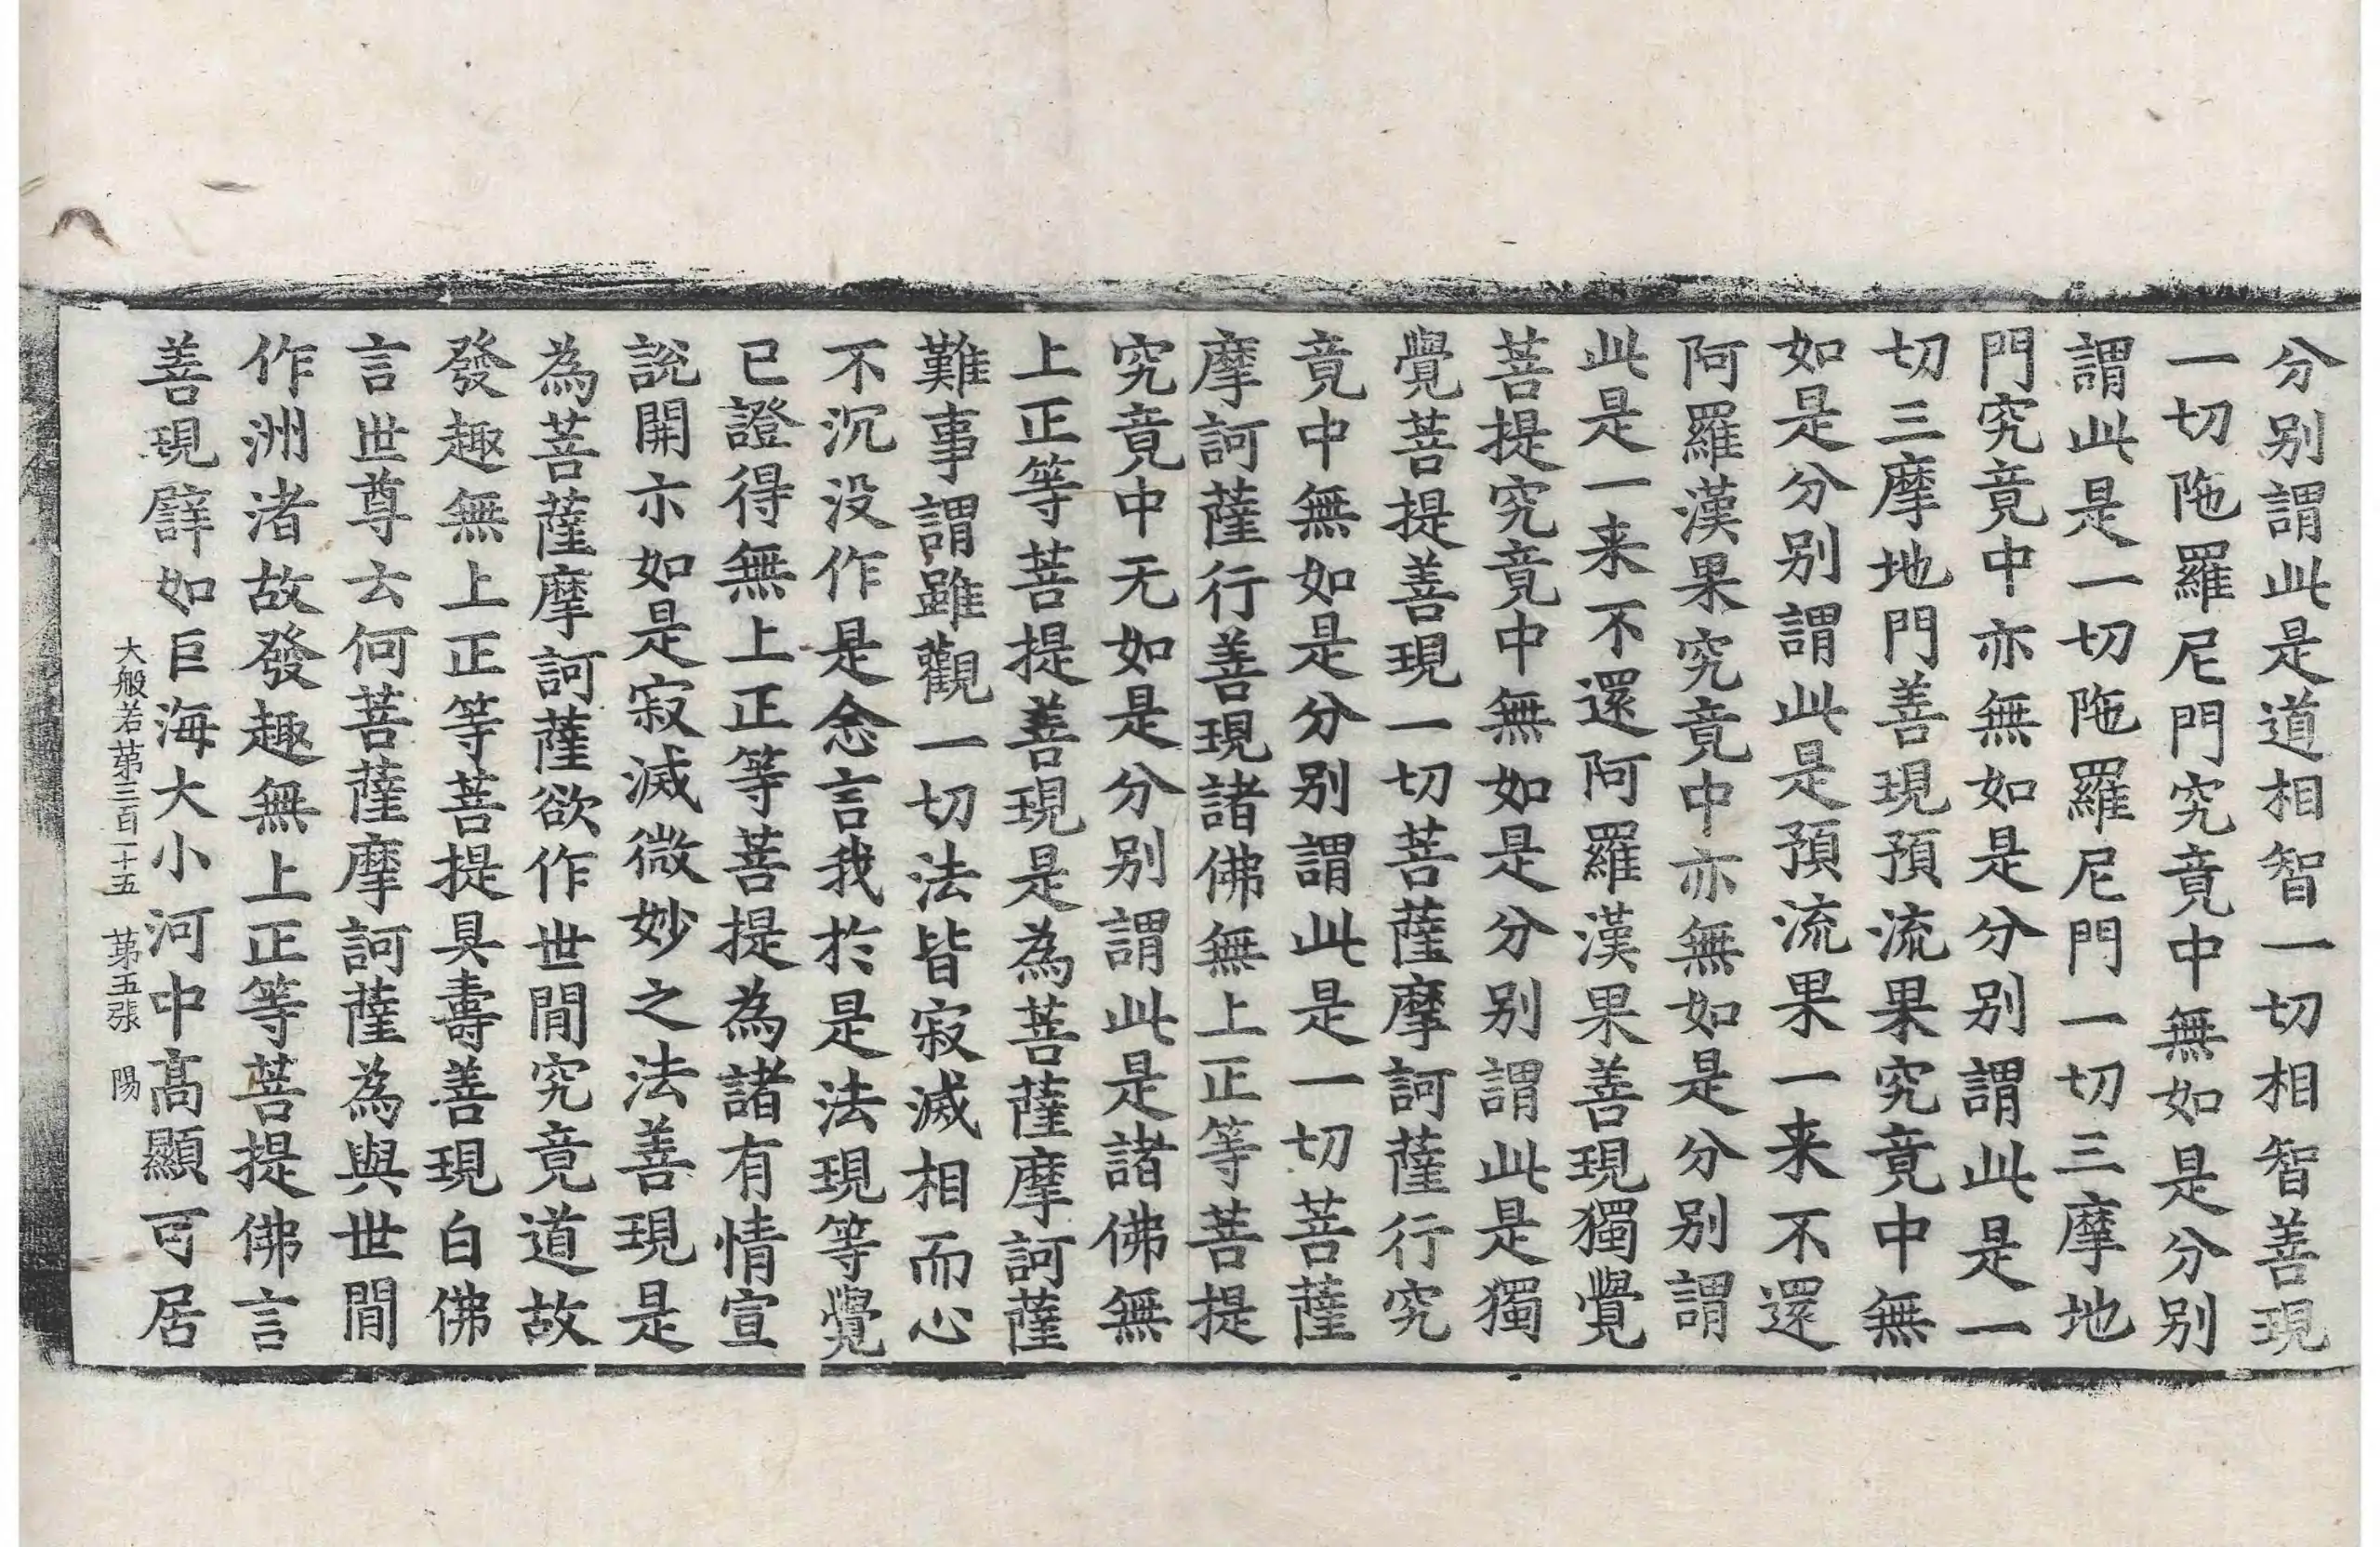 分别謂此是道相智一切相智善現
一切陁羅尼門究竟中無如是分别
謂此是一切陁羅尼門一切三摩地
門究竟中亦無如是分别謂此是一
切三摩地門善現預流果究竟中無
如是分别謂此是預流果一来不還
阿羅漢果究竟中亦無如是分别謂
此是一来不還阿羅漢果善現獨覺
菩提究竟中無如是分别謂此是獨
覺菩提善現一切菩薩摩訶薩行究
竟中無如是分别謂此是一切菩薩
摩訶薩行善現諸佛無上正等菩提
究竟中无如是分别謂此是諸佛無
上正等菩提善現是為菩薩摩訶薩
難事謂雖觀一切法皆寂滅相而心
不沉没作是念言我於是法現等覺
已證得無上正等菩提為諸有情宣
說開示如是寂滅微妙之法善現是
為菩薩摩訶薩欲作世間究竟道故
發趣無上正等菩提具壽善現白佛
言世尊云何菩薩摩訶薩為與世間
作洲渚故發趣無上正等菩提佛言
善現譬如巨海大小河中高顯可居
大般若苐三百一十五 苐五張 陽